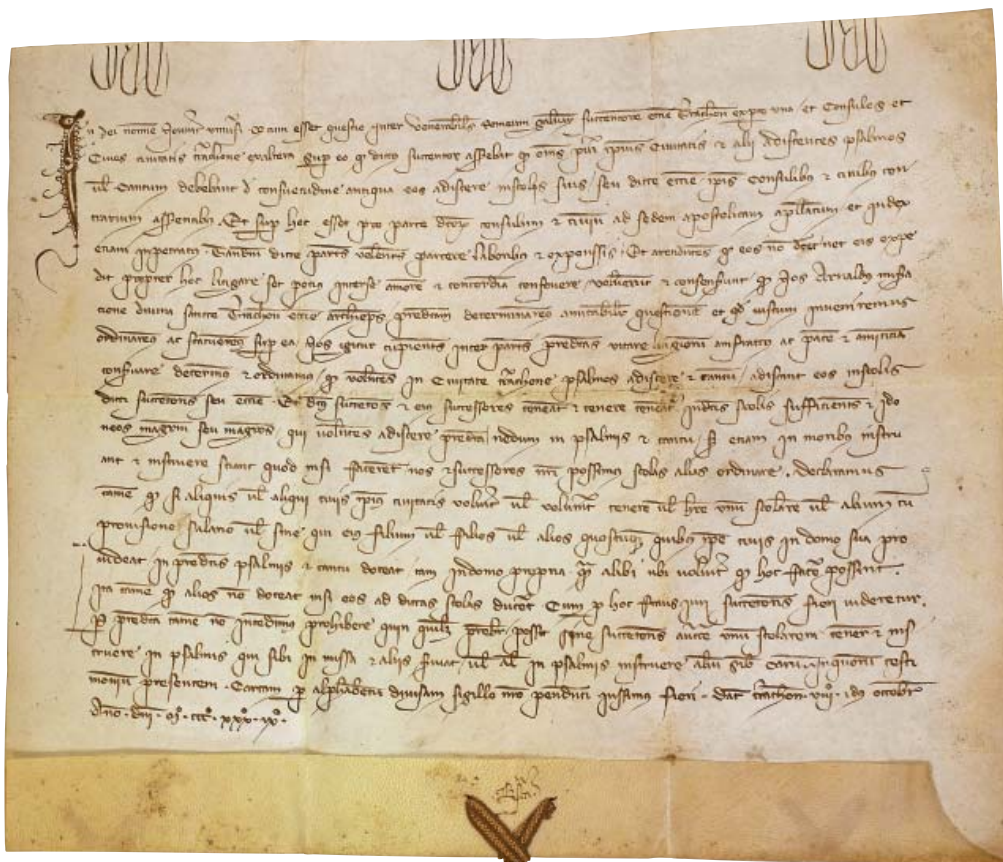 In dei nomine Nouint vniusi qd cum esset questio inter venerabilẽ Romeum galuay succentorẽ ecctie Trrachoñ ex pte una et Consules et
Ciues ciuitatis Trrachone ex altera sup eo qd dictus succentor asserebat qd oms pueri ipius Ciuitatis & alij Adiscentes psalmos
ul Cantum debebant de consuetudine antiqua eos adiscere in scolis suis seu dicte ecctie ipis Consulibz & ciuibz con
trarium asserentibz. Et sup hoc esset pro parte dictoꝝ consulum & ciuiũ ad sedem apostolicam appellatum et iudex
etiam inpetratus. Tandem dicte partes volentes parcere laboribz & expensis. Et attendentes qd eos nõ decet nec eis expe
dit propter hoc litigare set pocius inter se amorẽ & concordiã conseruare. Voluerunt & consenserunt qd Nos Arnaldus misera
cione diuina sancte Trrachoñ ecctie archieps predictam determinaremus amicabilit questionẽ et qd iustum inueniremus
ordinaremus ac statueremus sup ea. Nos igitur cupientes inter partes predictas vitare litigiorũ anfractus ac pacẽ & amiciciã
conseruare determinamus & ordinamus qd volentes in Ciuitate Trrachone psalmos adiscere & cantũ adiscant eos in scolis
dicti succentoris seu ecctie. Et dictus succentor & eius successores teneat & tenere teneatur in dictis scolis sufficientes & ido
neos magistrũ seu magistros qui volentes adiscere predicta nedum in psalmis & cantu set etiam in moribz instru
ant & instruere sciant quod nisi faceret nos & successores nri possimus scolas alias ordinare. Declaramus
tamẽ qd si aliquis ul aliqui ciuis ipius ciuitatis voluerit ul voluerint tenere ul hre vnũ scolarẽ ul alium cũ
prouisione salario ul sine qui eius filium ul filios ul alios quoscumqz quibz ipe ciuis in domo sua pro
uideat in predictis psalmis & cantu doceat tam in domo propria qm alibi ubi voluerit qd hoc facere possent.
Ita tamẽ qd alios nõ doceat nisi eos ad dictas scolas ducerẽt Cum p hoc fraus iuri succentoris fieri uideretur.
Per predicta tamẽ nõ intendimus prohibere quin quilibet presbiter possit sine succentoris iniuria vnũ scolarem tenere & ins
truere in psalmis qui sibi in missa & aliis seruiat ul al in psalmis instruere aliũ gratis. In quorũ testi
moniũ presentem Cartam p alphabetũ diuisam sigillo nro pendenti iussimus fieri. Dat Trrachoñ. viijº. idus octobr
Anno. dni. Mº. cccº. xxxº. ixº.